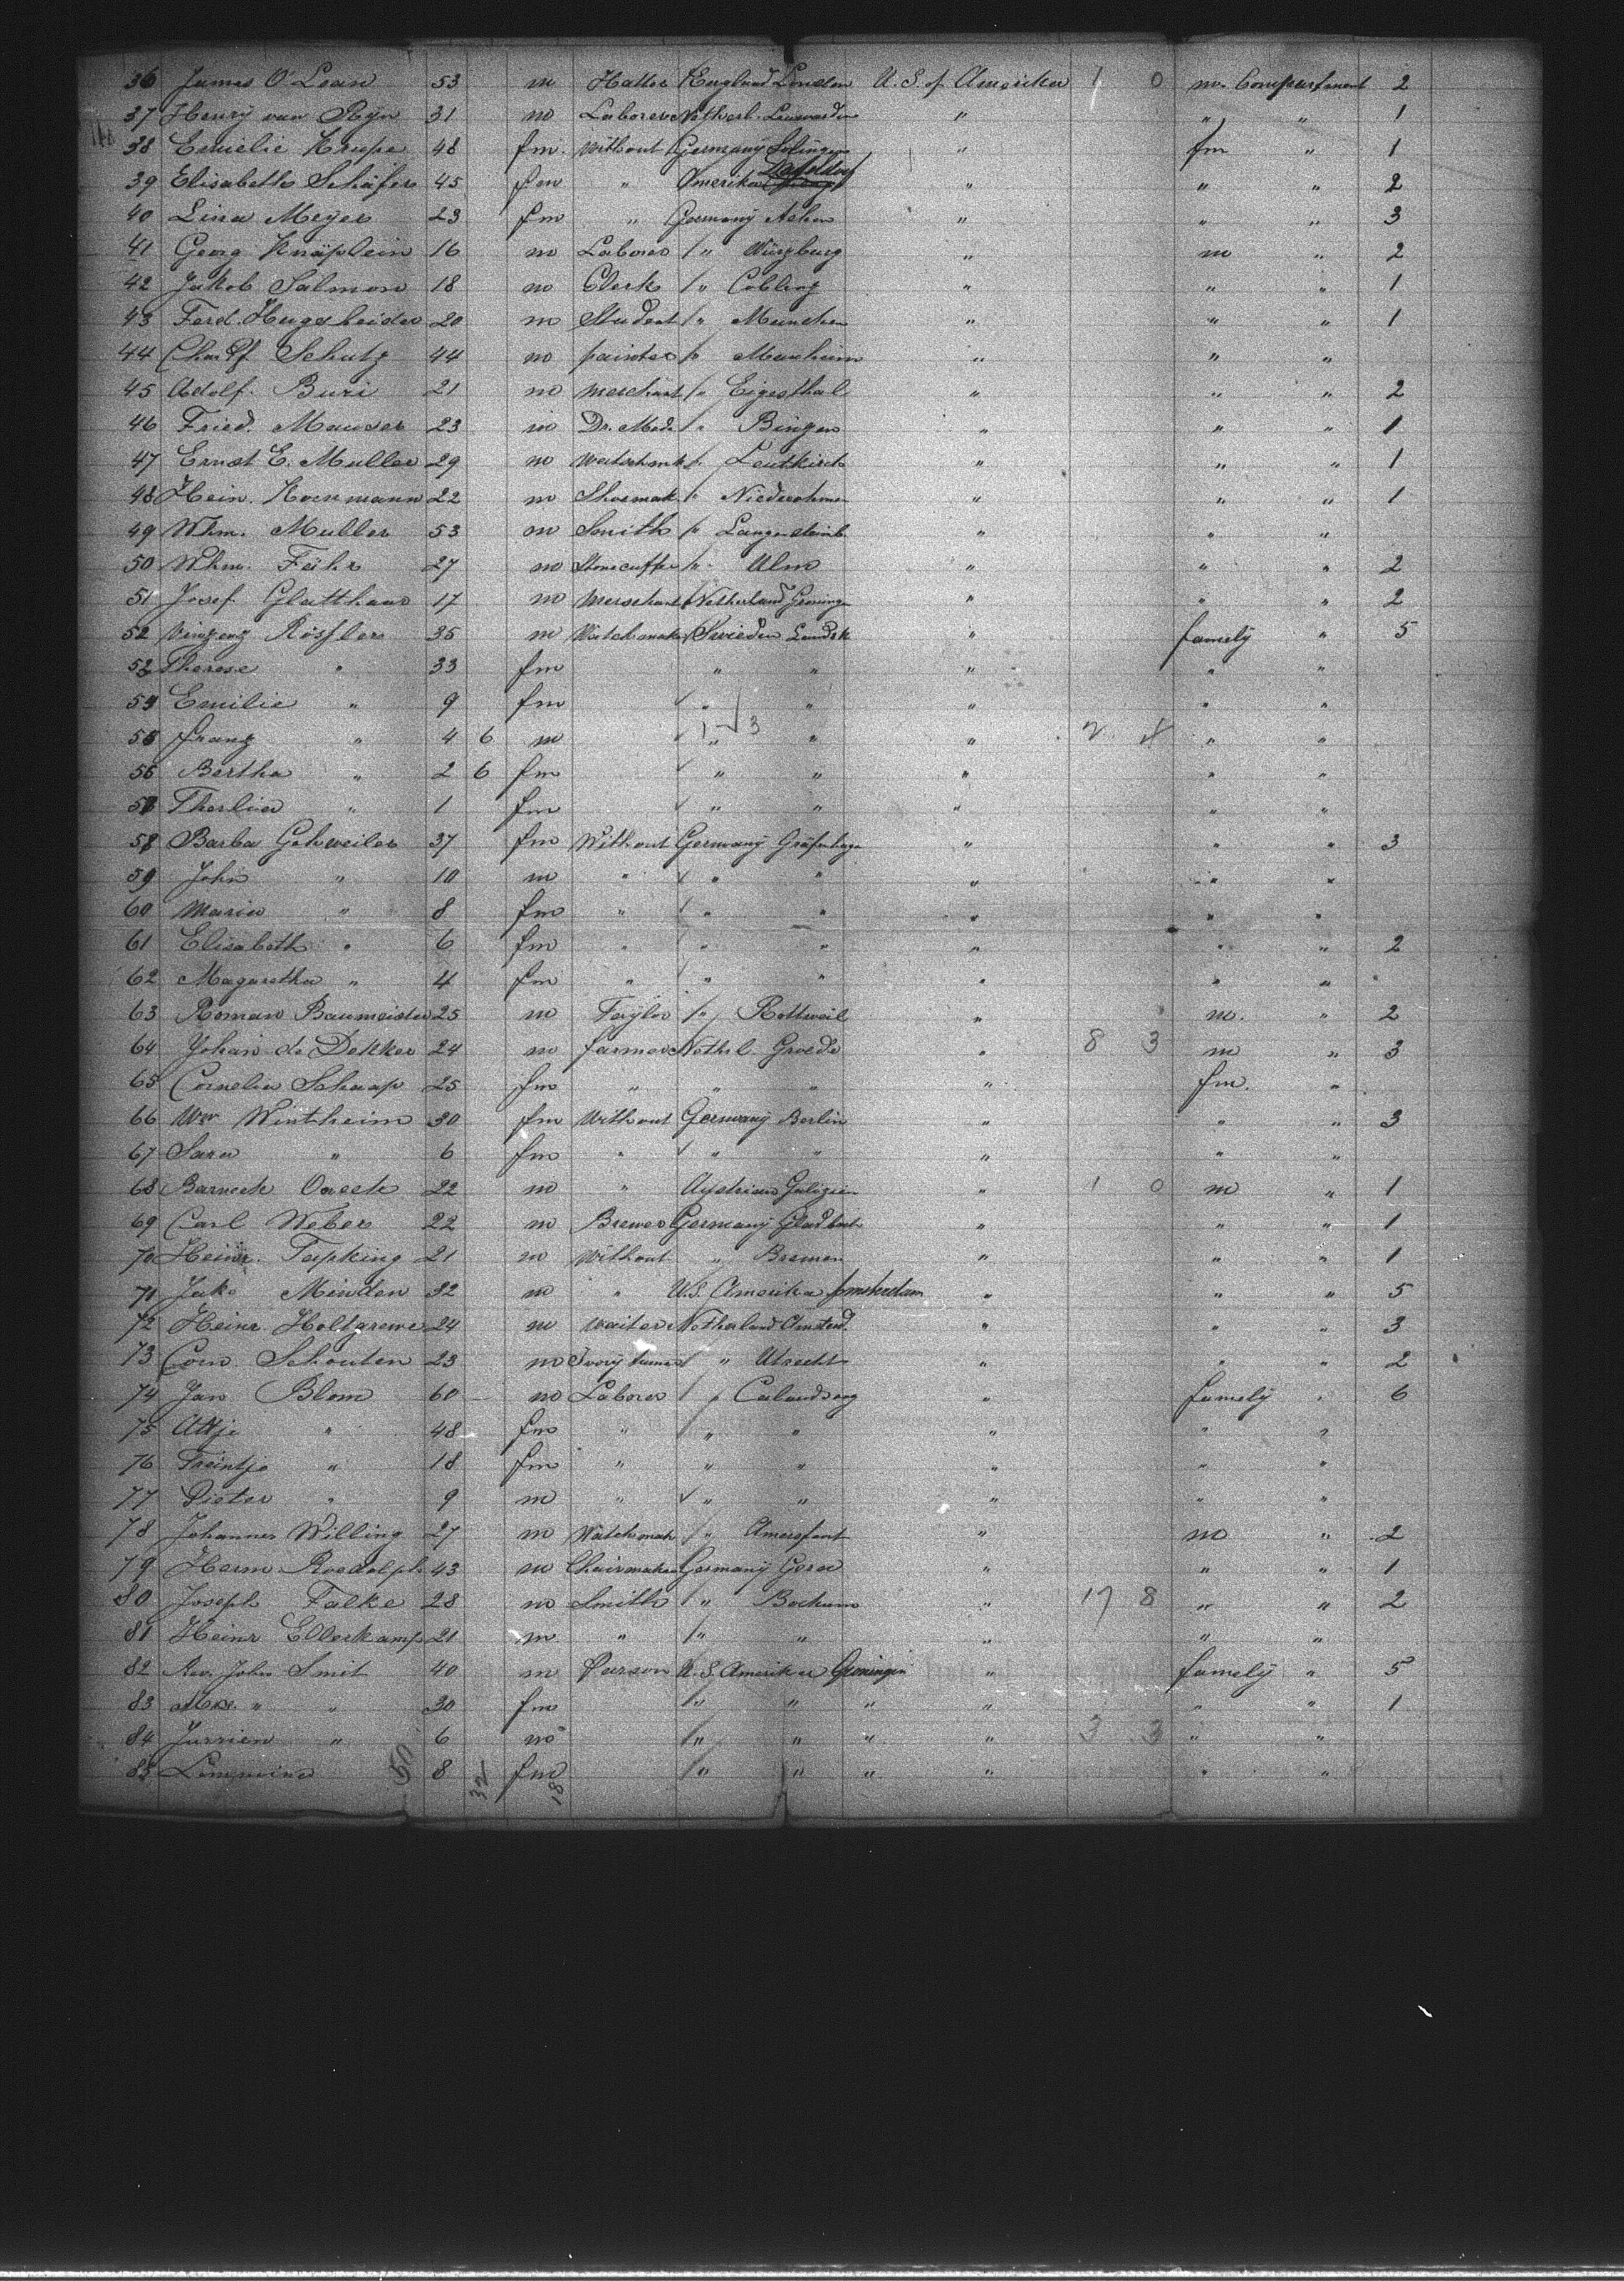 36 James O'Lean 53 m Hatter England London U. S. of Amerika 1 0 m. Compartment 2
37 Henry van Ryn 31 m Laborer Netherl. Leuwarden " " " 1
38 Emielie Krupe 48 fm. without Germany Solingen " fm " 1
39 Elisabeth Schäfer 45 fm " Amerika " " " 2
40 Lina Meyer 23 fm " Germany Achen " " " 3
41 Georg Knäplein 16 m Laborer " Würzburg " m " 2
42 Jakob Salmon 18 m Clerk " Coblenz " " " 1
43 Ferd. Hugesheider 20 m Student " Munchen " " " 1
44 Schutz 44 m painter " Manheim " " "
45 Adolf. Buri 21 m merchant " Eigesthal " " " 2
46 Fried. Mauser 23 m Dr. Med. " Bingen " " " 1
47 Ernst E. Muller 29 m " Leutkirch " " " 1
48 Hein. Hornmann 22 m Shoemak. " " " " 1
49 Whm. Muller 53 m Smith " Langensteinb " " "
50 Whm. Fähr 27 m Stonecutter " Ulm " " " 2
51 Josef. Glatthaar 17 m Merschant Netherland Groninge " " " 2
52 Vinzenz Rössler 35 m Watchmak Sweeden Landsk " famely " 5
52 Therese " 33 fm " " " " "
54 Emilie " 9 fm " " " " "
55 Franz " 4 6 m " " " 2 4 " "
56 Bertha " 2 6 fm " " " " "
57 " 1 fm " " " " "
58 Barba Gehweiler 37 fm Without Germany Gräfenhage " " " 3
59 John " 10 m " " " " " "
60 Maria " 8 fm " " " " " "
61 Elisabeth " 6 fm " " " " " " 2
62 Magaretha " 4 fm " " " " " "
63 Roman Baumeister 25 m Taylor " Rottweil " m. " 2
64 Johan de Dekker 24 m farmer Nethrl. Groede " 8 3 m " 3
65 Cornelia Schaap 25 fm " " " " fm. "
66 Wintheim 30 fm Without Germany Berlin " " " 3
67 Sara " 6 fm " " " " " "
68 22 m " Austrian Galizien " 1 0 m " 1
69 Carl Weber 22 m Brewer Germany Gladbach " " " 1
70 Heinr. Tapking 21 m Without " Bremen " " " 1
71 Jake Minden 32 m " U.S. Amerika Amsterdam " " " 5
72 Heinr. Holtgrewe 24 m waiter Netherland Amsterd. " " " 3
73 Corn. Schouten 23 m Ivory turner " Utrecht " " " 2
74 Jan Blom 60 m Laborer " Calandsoog " famely " 6
75 Attje " 48 fm " " " " " "
76 Treintje " 18 fm " " " " " "
77 Pieter " 9 m " " " " " "
78 Johannes Willing 27 m Watchmak " Amersfoort " m " 2
79 Herm. Roedolph 43 m Chairmaker Germany Gera " " " 1
80 Joseph Falke 28 m Smith " Bochum " 17 8 " " 2
81 Heinr Ellerkamp 21 m " " " " " "
82 Rev. John Smit 40 m Parson U. S. Amerika Groningen " famely " 5
83 Mrs. " " 30 fm " " " " " " 1
84 Jurrien " 6 m " " " " 3 3 " "
85 8 fm " " " " " "
50 32 18